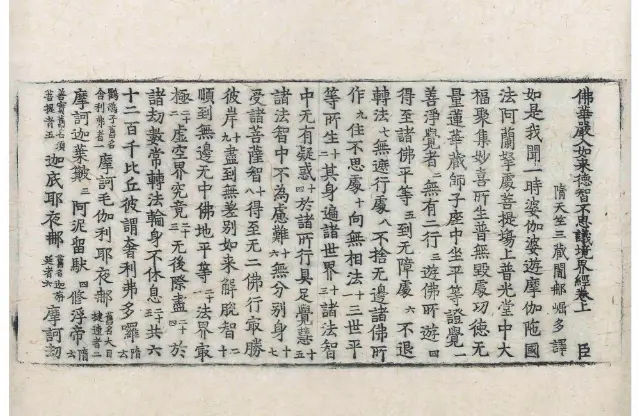 佛華嚴入如來德智不思議境界經卷上 臣
隋天竺三藏闍那崛多譯
如是我聞一時婆伽婆遊摩伽陁國
法阿蘭拏處菩提場上普光堂中大
福聚集妙喜所生普無毀處功徳无
量蓮華藏師子座中坐平等證覺一
善淨覺者二無有二行三遊佛所遊四
得至諸佛平等五到无障處六不退
轉法七無遮行處八不捨无邊諸佛所
作九住不思處十向無相法十一三世平
等所生十二其身遍諸世界十三諸法智
中无有疑惑十四於諸所行具足覺慧十五
諸法智中不為慮難十六無分別身十七
受諸菩薩智十八得至无二佛行㝡勝
彼岸十九盡到無差別如来解脫智二十
順到無邊无中佛地平等二十一法界㝡
極二十二虛空界究竟二十三无後際盡二十四於
諸劫數常轉法輪身不休息二十五共六
十二百千比丘彼謂奢利弗多囉隋六
鸜鵒子舊名舍利弗者二摩訶毛伽利耶夜那舊名大目揵連者二
摩訶迦葉簸三阿泥留駄四修浮帝隋六
善實舊名須菩提者五迦底耶夜那舊名迦旃延者六摩訶劫